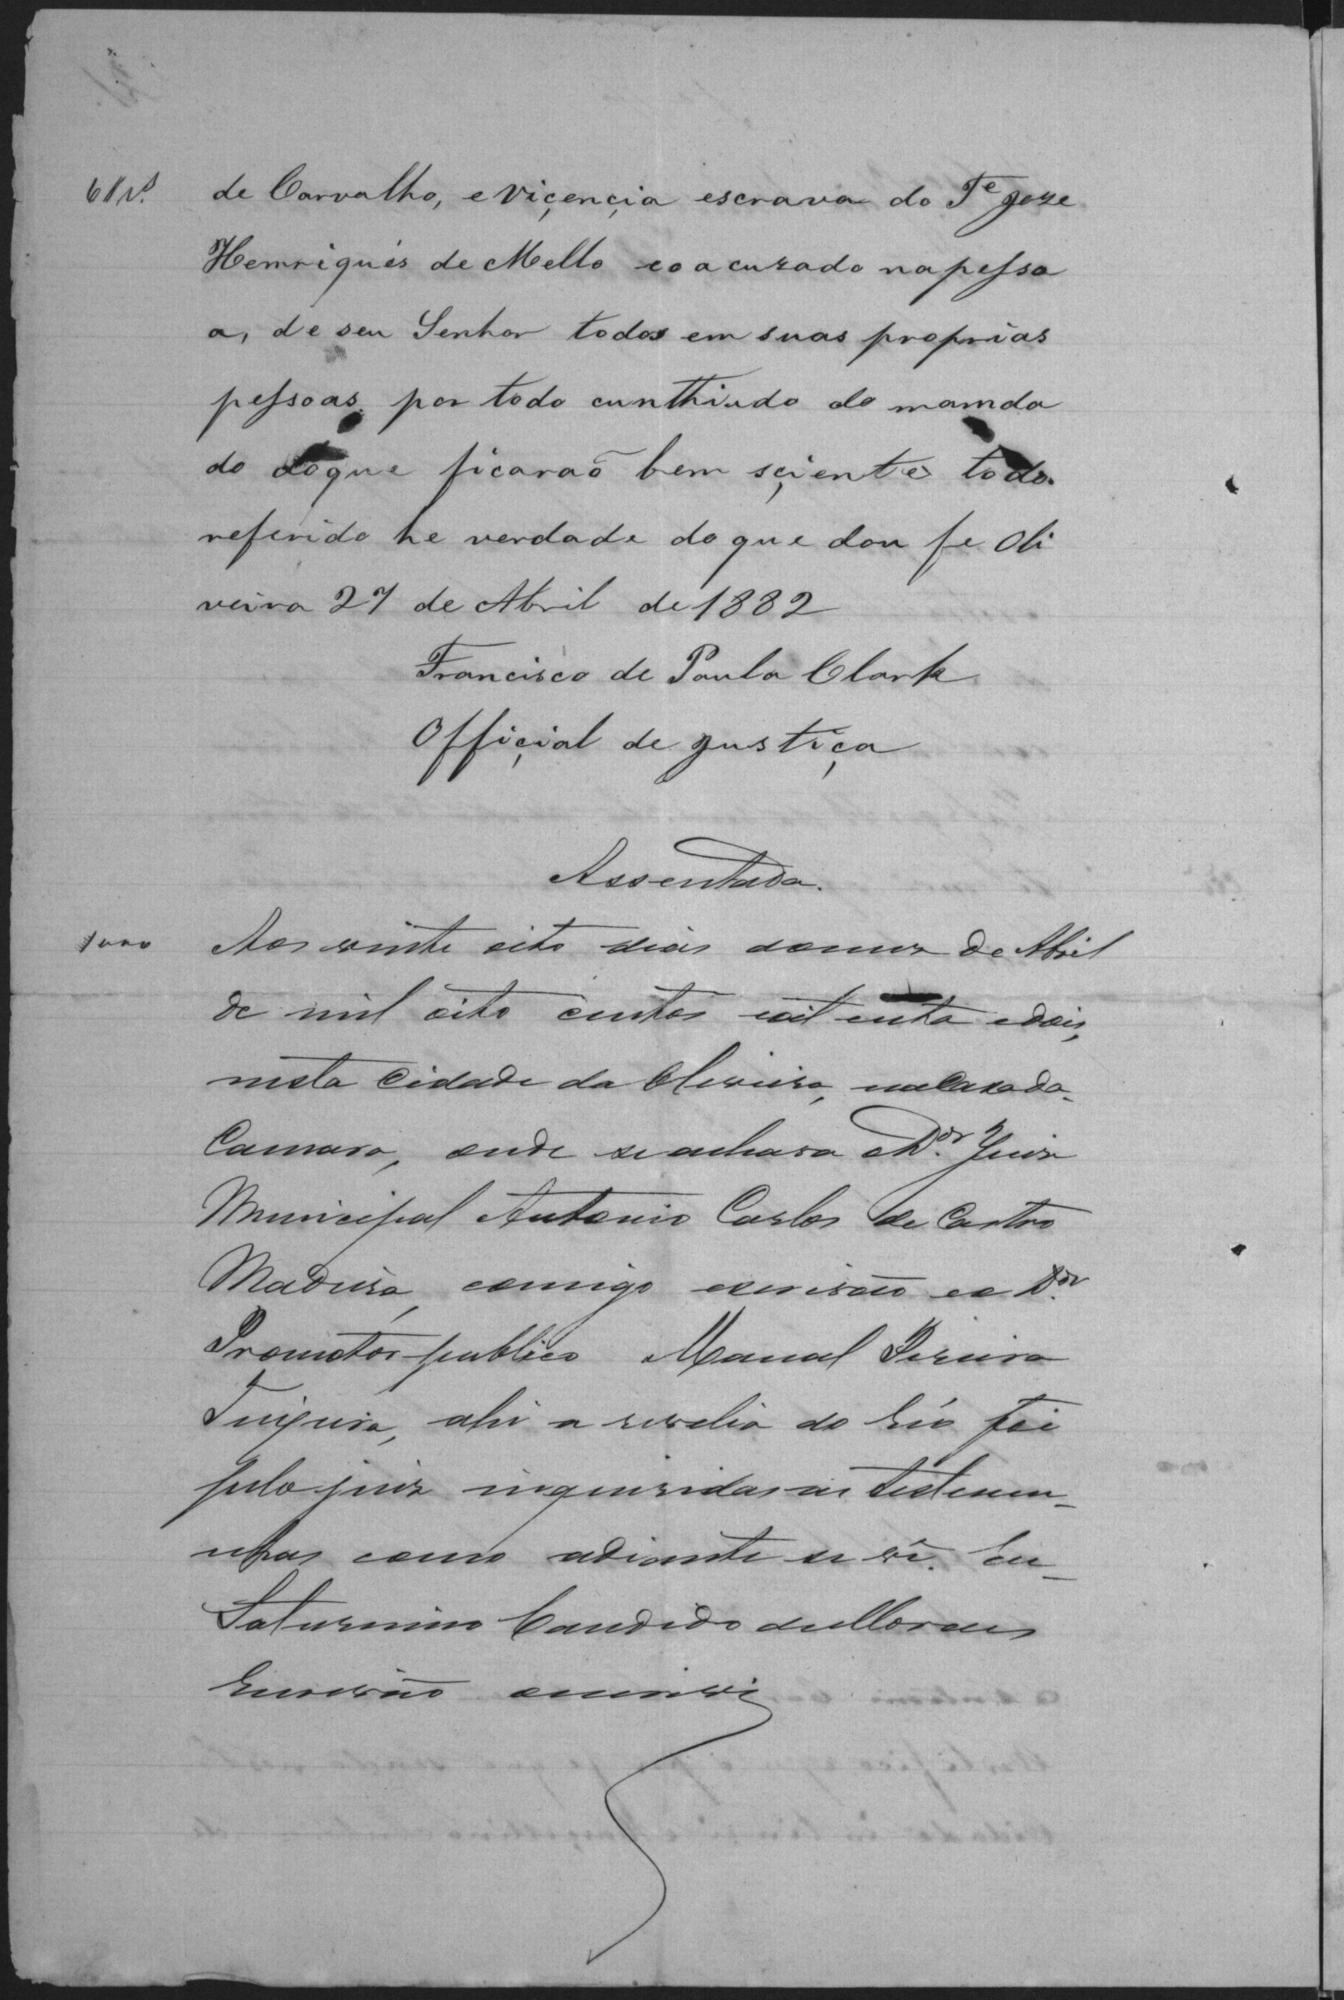 de Carvalho, e Viçençia escrava do Te Joze
Henriqués de Mello eo acuzado napessa
a, de seu Senhor todos em suas proprias
pessoas por todo cunthiudo do mamda
do doque ficaraõ bem sçiente todo
referido he verdade do que dou fe Oli
veira 27 de Abril de 1882
Francisco de Paula Clark
Offiçial de justiça
Assentada.
Aos vinte oito dias domez de Abril
de mil oito centos oitenta edois,
nesta Cidade da Oliveira, nacasada
Camara, onde seachava o Dor Juiz
Municipal Antonio Carlos de Castro
Madeira, comigo escrivão eo Dor
Promotor publico Manoel Pereira
Teixeira, ahi a revelia do Réo foi
pelo juiz inqueridas as testemu-
nhas como adiante se vê. Eu
Saturnino Candido de Moraes
Escrivão escrivi